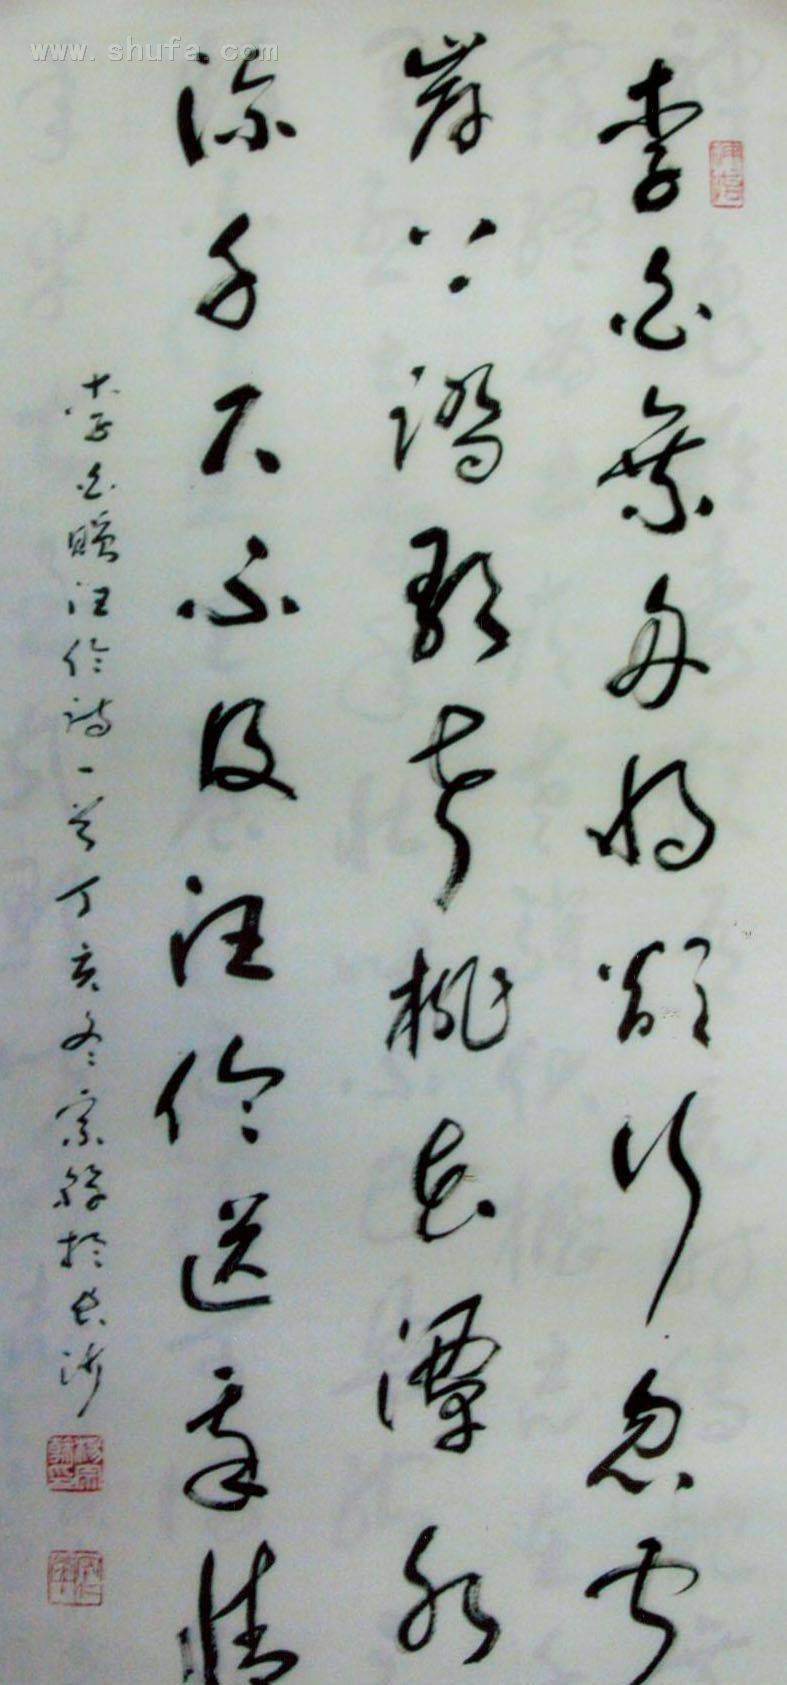 www.shufa.com
李白乘舟將欲行忽聞
岸上踏歌聲桃花潭水
深千尺不及汪倫送我情
李白贈汪倫詩一首丁亥冬宗於長沙